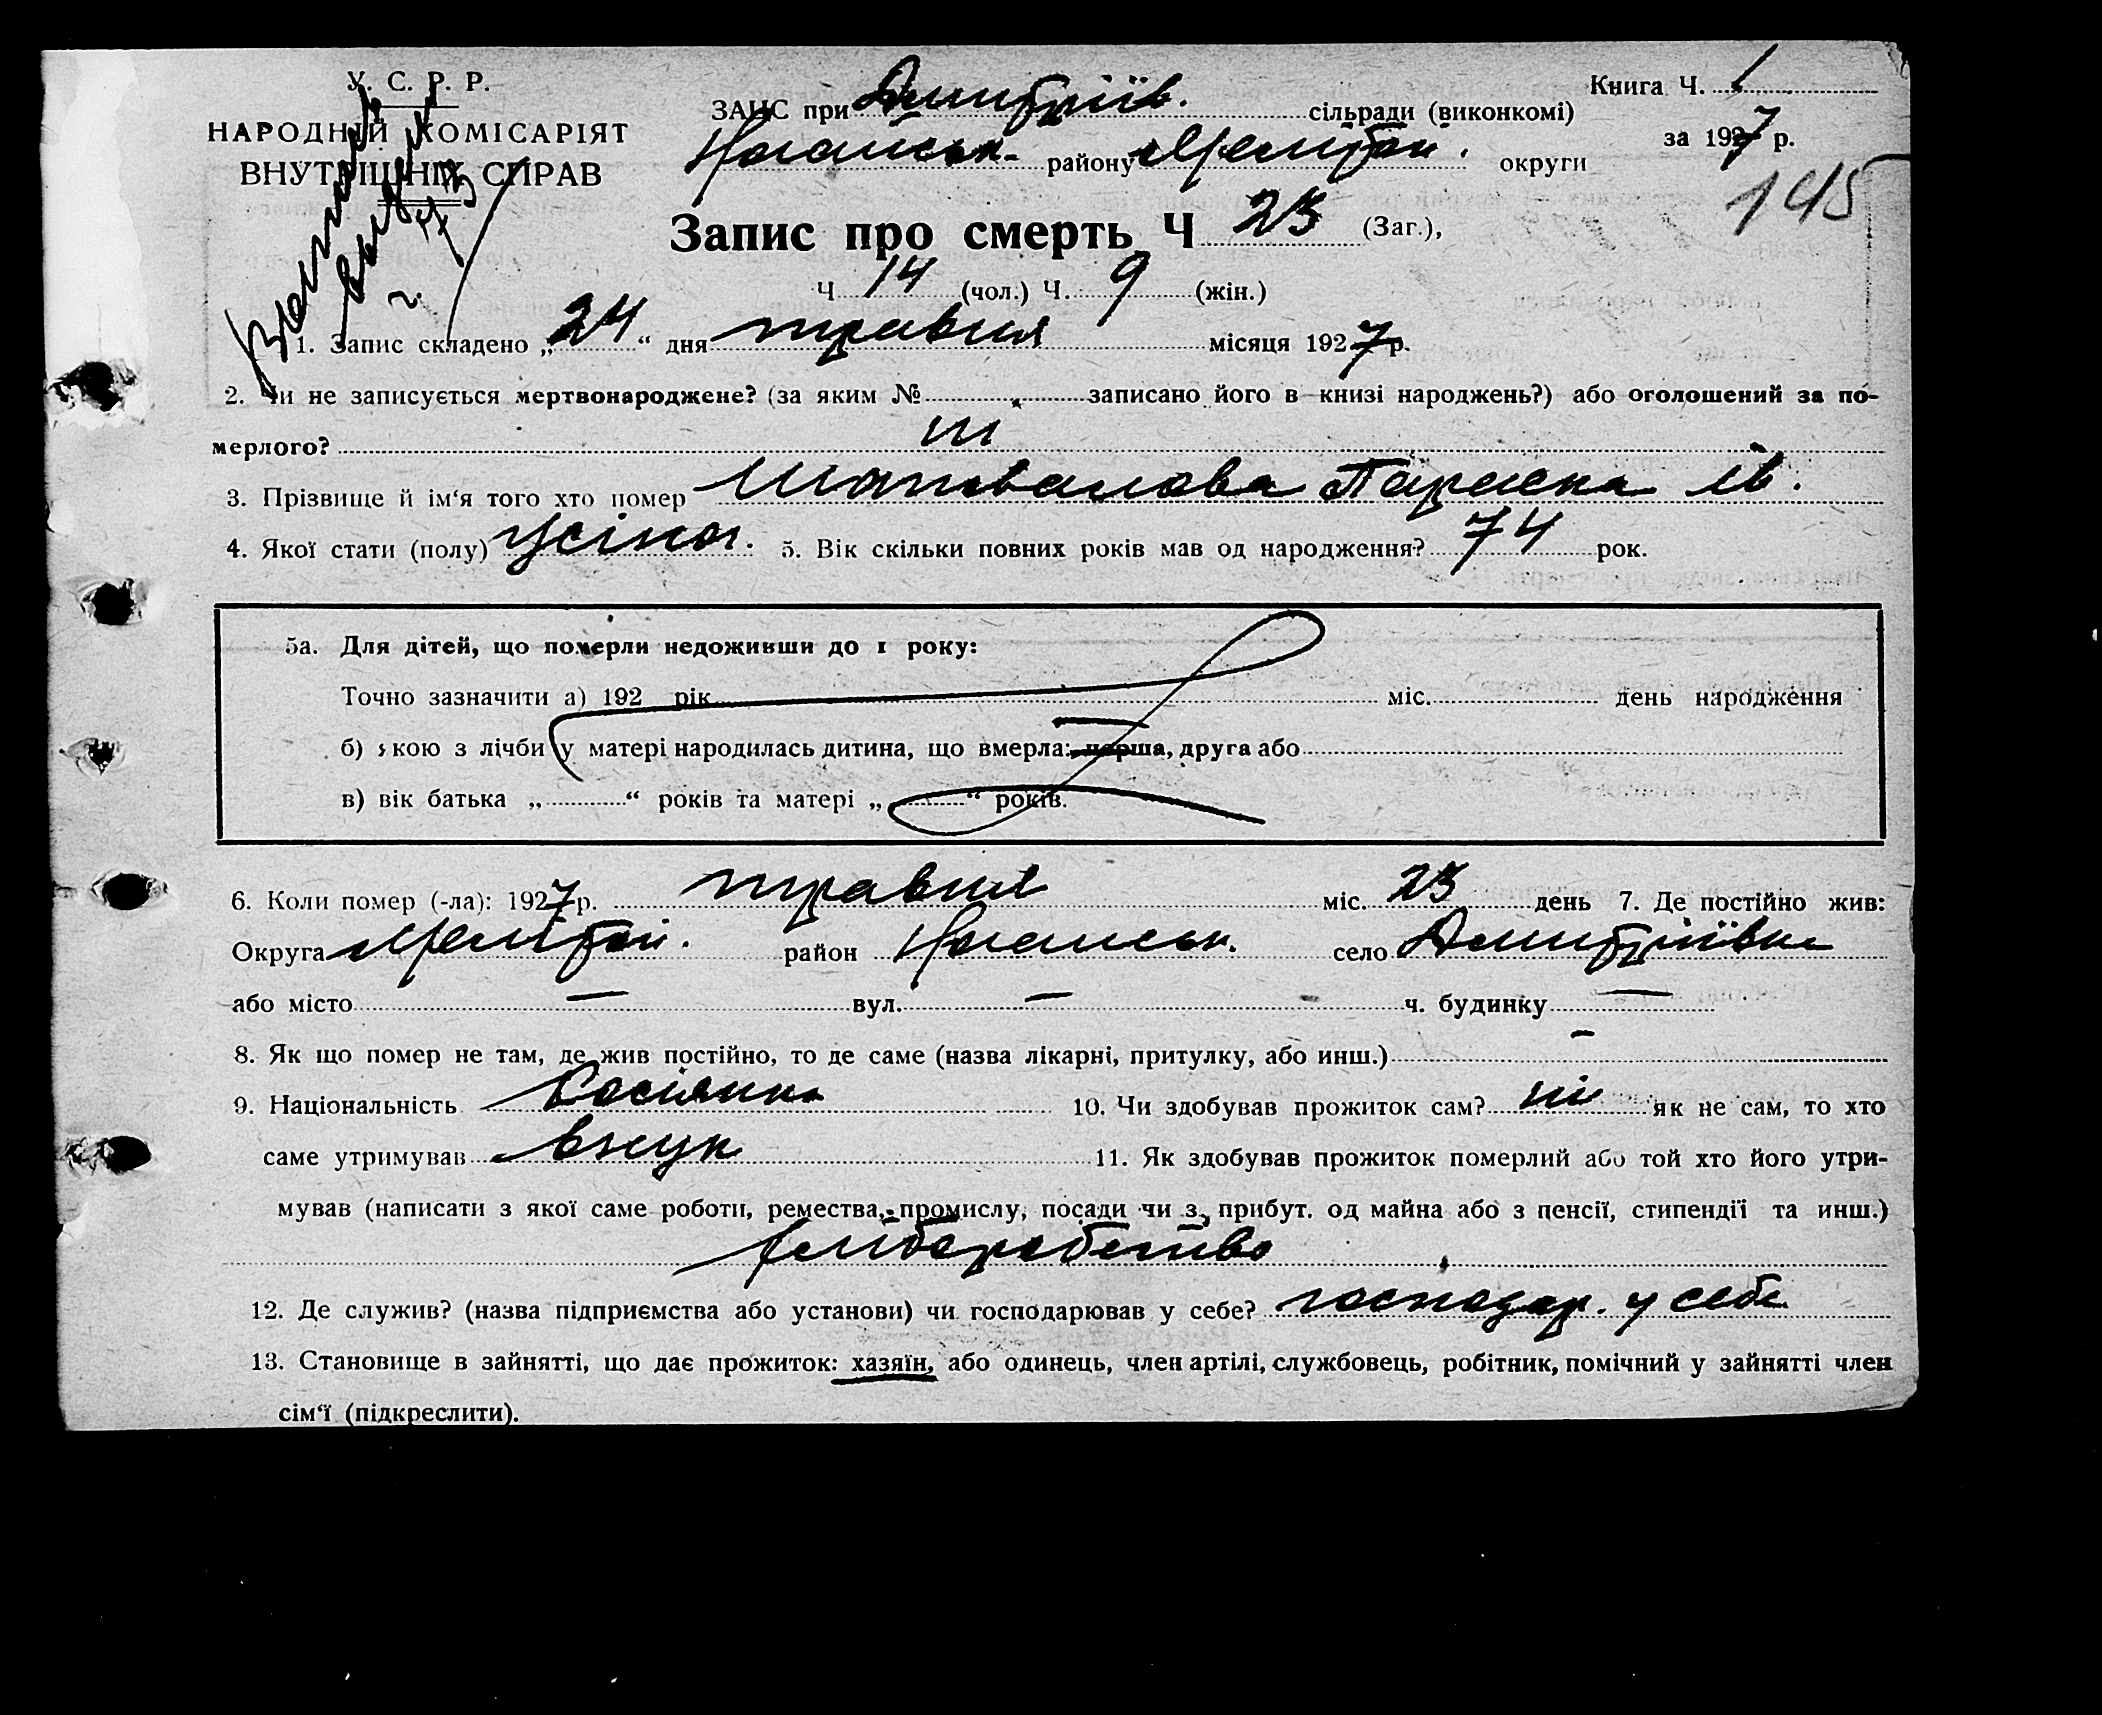 У. С. Р. Р.
НАРОДНІЙ КОМІСАРІЯТ
ВНУТРІШНІХ СПРАВ
Книга Ч. 1
за 1927 р.
145
ЗАЦС при Дмитріїв. сільради (виконкомі)
Ногайськ. району Мелітоп. округи
Запис про смерть Ч 23 (Заг.),
Ч 14 (чол.) Ч. 9 (жін.)
1. Запис складено „24“ дня травня місяця 1927 р.
2. Чи не записується мертвонароджене? (за яким № записано його в книзі народжень?) або оголошений за по-
мерлого? ні
3. Прізвище й ім‘я того хто помер Шаповалова Параска Ів.
4. Якої стати (полу) жіноч. 5. Вік скільки повних років мав од народження? 74 рок.
5а. Для дітей, що померли недоживши до 1 року:
Точно зазначити а) 192 рік міс. день народження
б) якою з лічби у матері народилась дитина, що вмерла: перша, друга або
в) вік батька „ “ років та матері „ “ років.
6. Коли помер (-ла): 1927 р. травня міс. 23 день 7. Де постійно жив:
Округа Мелітоп. район Ногайськ. село Дмитріївка
або місто — вул. — ч. будинку —
8. Як що помер не там, де жив постійно, то де саме (назва лікарні, притулку, або инш.) —
9. Національність Росіянка 10. Чи здобував прожиток сам? ні як не сам, то хто
саме утримував внук 11. Як здобував прожиток померлий або той хто його утри-
мував (написати з якої саме роботи, ремества, промислу, посади чи з прибут. од майна або з пенсії, стипендії та инш.)
хліборобство
12. Де служив? (назва підприємства або установи) чи господарював у себе? господар. у себе
13. Становище в зайнятті, що дає прожиток: хазяїн, або одинець, член артілі, службовець, робітник, помічний у зайнятті член
сім‘ї (підкреслити).